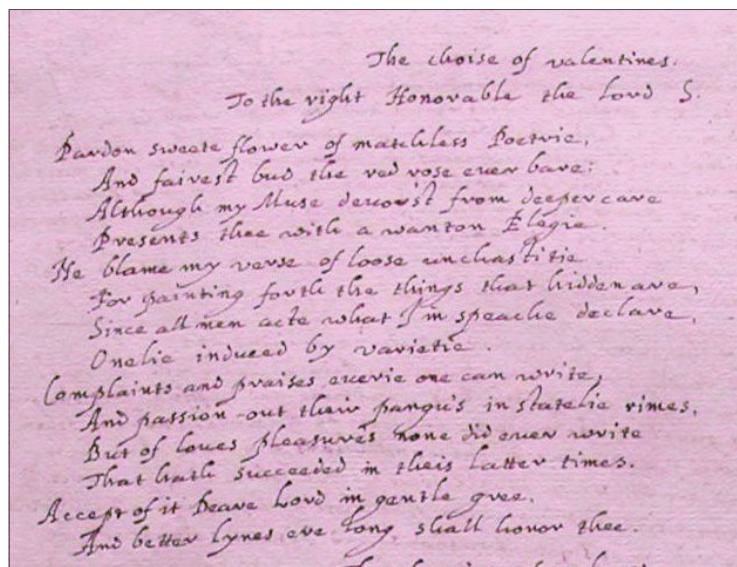 The choise of valentines.
To the right Honorable the Lord S.
Pardon sweete flower of matchless Poetrie,
And fairest bud the red rose euer bare;
Although my Muse deuorc't from deeper care
Presents thee with a wanton Elegie.
Ne blame my verse of loose unchastitie
For painting forth the things that hidden are,
Since all men acte what I in speache declare,
Onelie induced by varietie.
Complaints and praises euerie one can write,
And passion-out their pangu's in statelie rimes,
But of loues pleasure's none did euer write
That hath succeeded in theis latter times.
Accept of it Deare Lord in gentle gree,
And better lynes ere long shall honor thee.